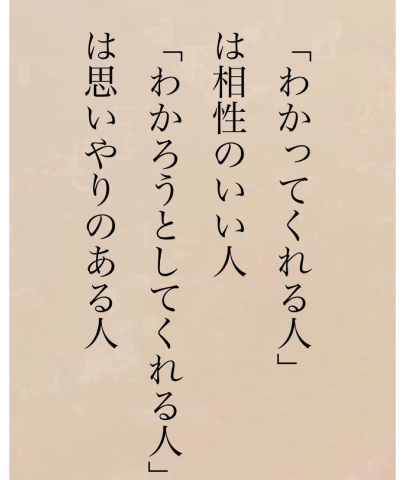 「わかってくれる人」
は相性のいい人
「わかろうとしてくれる人」
は思いやりのある人